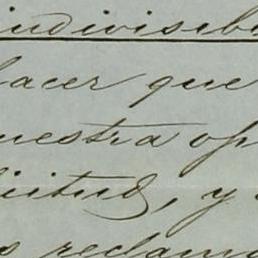 indivisib
acer que
uestra op
itud, y
reclama